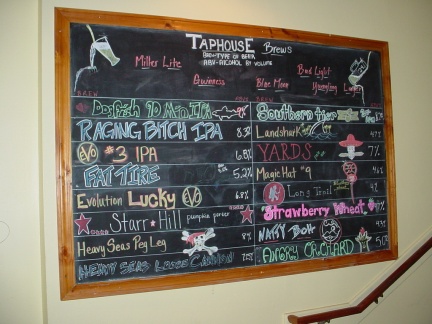 TAPHOUSE Brews
BREW=TYPE OF BEER
ABV=ALCOHOL BY VOLUME
Miller Lite
Bud Light
Guinness
Blue Moon
Yuengling Lager
BREW
Dogfish 90 Min IPA 9%
RAGING BITCH IPA 8.3%
EVO #3 IPA 6.8%
FAT TIRE 5.2%
Evolution Lucky EVO 6.8%
Starr Hill pumpkin porter
Heavy Seas Peg Leg 8%
HEAVY SEAS Loose Cannon 7.25%
Southern Tier
Landshark 4.7%
YARDS 7%
Magic Hat #9 4.6%
Long Trail
Strawberry Wheat
NATTY BOH
ANGRY ORCHARD 5.0%